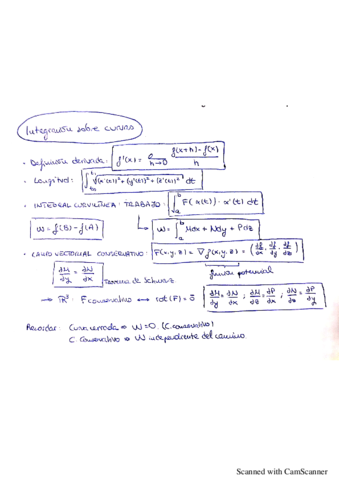 Integración sobre curvas
· Definición derivada: f'(x) = lim h→0 f(x+h) - f(x) / h
· Longitud: ∫ √(x'(t))² + (y'(t))² + (z'(t))² dt
· INTEGRAL CURVILÍNEA · TRABAJO: ∫ₐᵇ F(α(t)) · α'(t) dt
W = f(B) - f(A) W = ∫ₐᵇ Mdx + Ndy + Pdz
· CAMPO VECTORIAL CONSERVATIVO: F(x,y,z) = ∇f(x,y,z) = (∂f/∂x, ∂f/∂y, ∂f/∂z)
función potencial
∂M/∂y = ∂N/∂x Teorema de Schwarz
→ ℝ³: F conservativo ⟷ rot(F) = 0̄ ∂M/∂y = ∂N/∂x ; ∂M/∂z = ∂P/∂x ; ∂N/∂z = ∂P/∂y
Recordar: Curva cerrada ⇒ W=0. (C. conservativo)
C. conservativo ⇒ W independiente del camino
Scanned with CamScanner